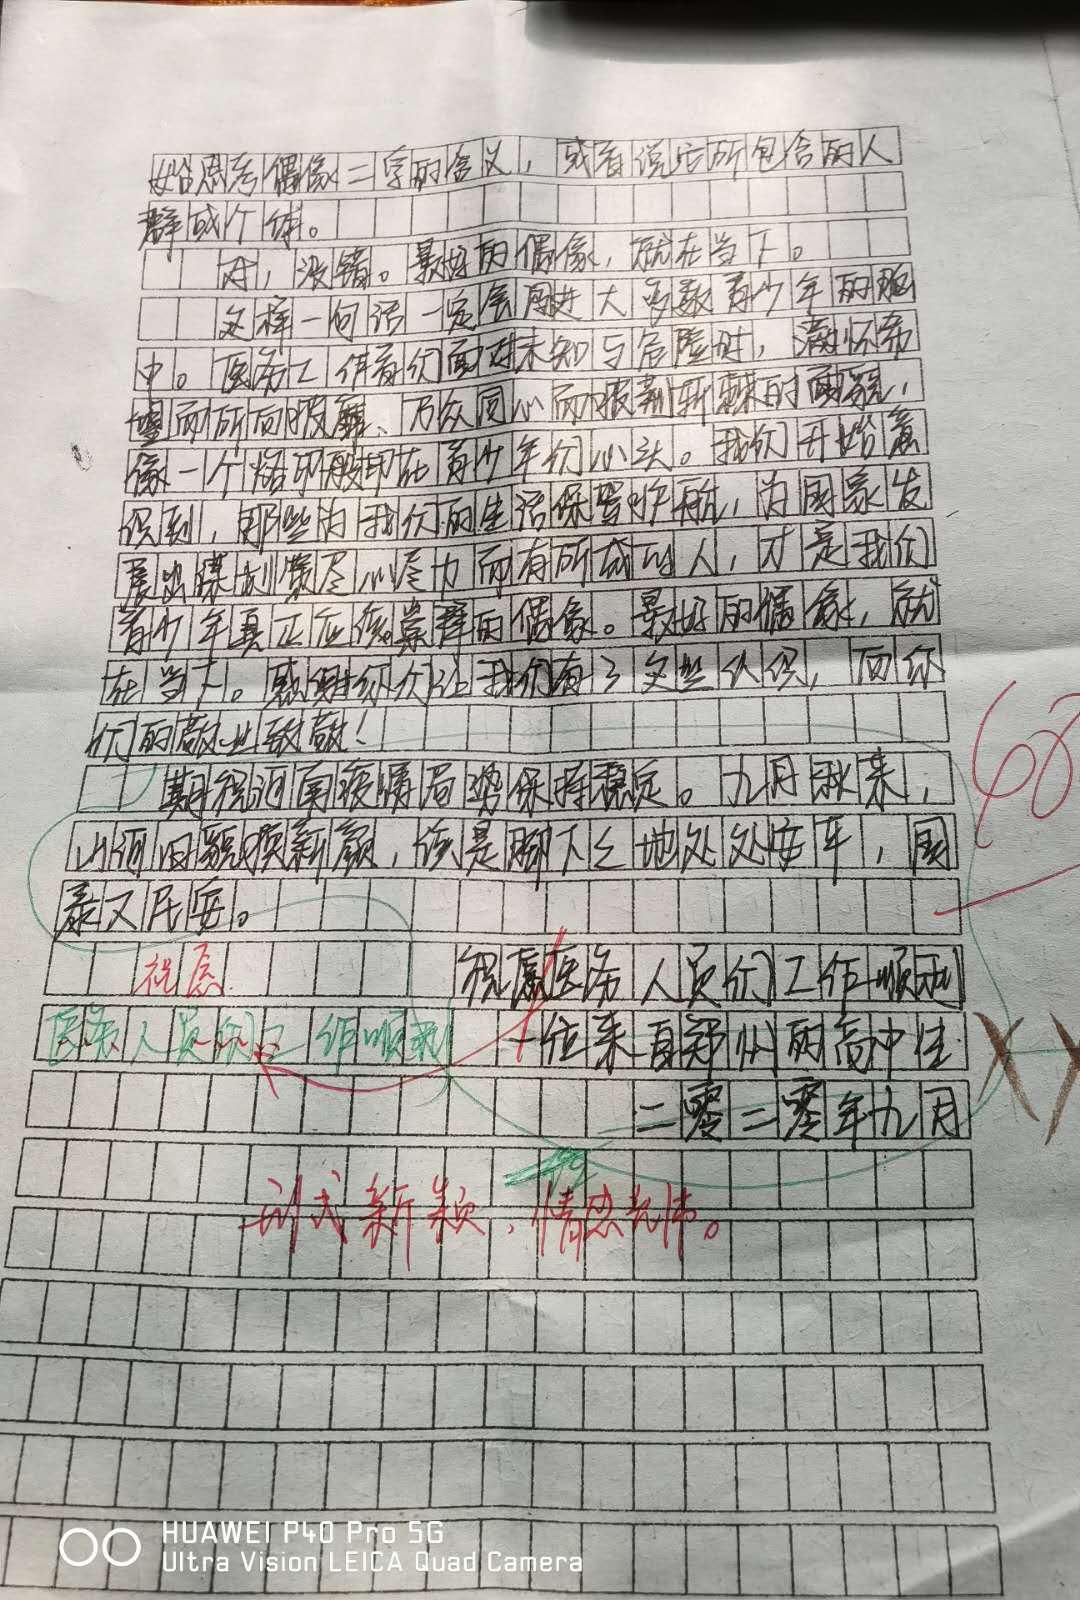 始思考偶像二字的含义，或者说它所包含的人
群或个体。
对，没错。最好的偶像，就在当下。
这样一句话一定会闯进大多数青少年的脑
中。医务工作者们面对未知与危险时，满怀希
望而所向披靡、万众同心而披荆斩棘的面貌，
像一个烙印般印在青少年们心头。我们开始意
识到，那些为我们的生活保驾护航，为国家发
展出谋划策尽心尽力而有所成的人，才是我们
青少年真正应该崇拜的偶像。最好的偶像，就
在当下。感谢你们让我们有了这些认识，向你
们的敬业致敬！
期祝河南疫情局势保持稳定。九月秋来，
山河旧貌换新颜，该是脚下之地处处安平，国
泰又民安。
祝愿 祝愿医务人员们工作顺利
医务人员们工作顺利 一位来自郑州的高中生
二零二零年九月
形式新颖，情感充沛。
68
HUAWEI P40 Pro 5G
Ultra Vision LEICA Quad Camera